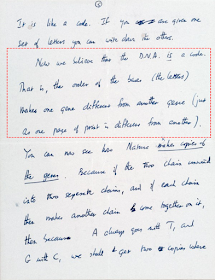 It is like a code. If you are given one
set of letters you can write down the others.
Now we believe that the D.N.A. is a code.
That is, the order of the bases (the letters)
makes one gene different from another gene (just
as one page of print is different from another).
You can now see how Nature makes copies of
the genes. Because if the two chains unwind
into two separate chains, and if each chain
then makes another chain come together on it,
then because A always goes with T, and
G with C, we shall get two copies where